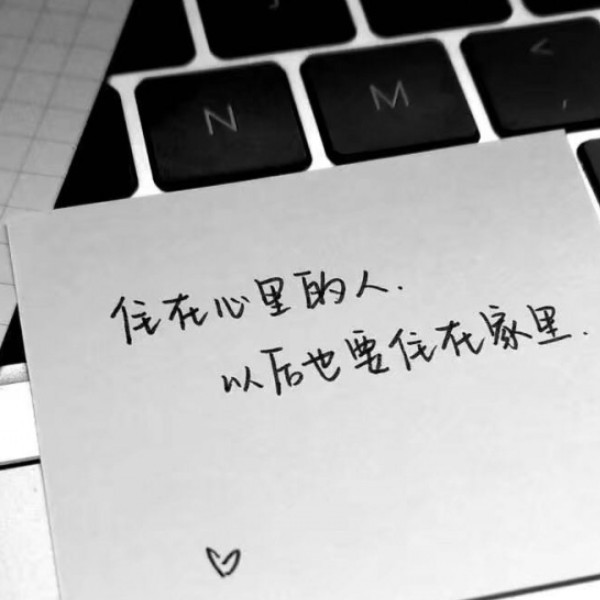 N M <
,
住在心里的人.
以后也要住在家里.